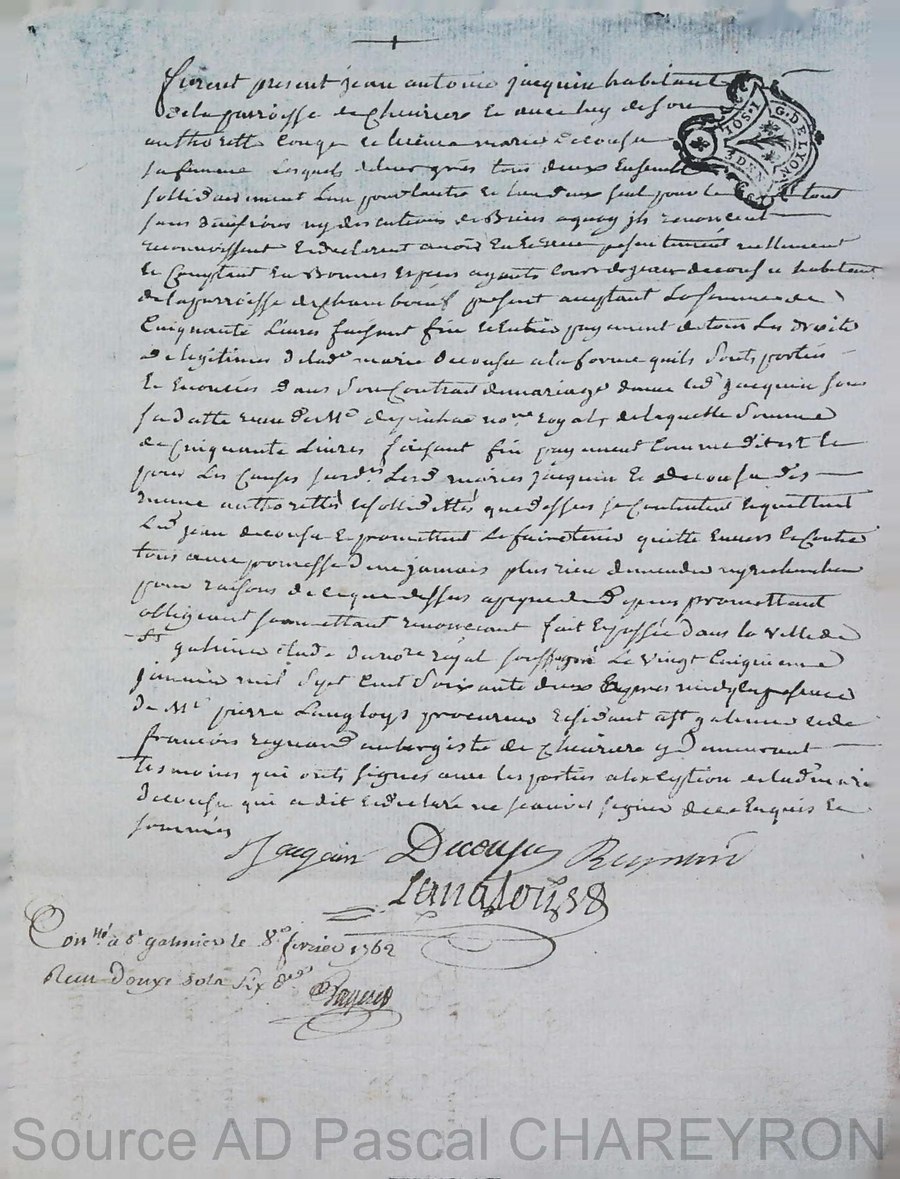 furent present jean antoine jacquin habitant
de la parroisse de cheurieres le quel de son
authorette conge et licence marie decousu
sa femme lesquels de leur grés tous deux ensemble
sollidairement l'un pour lautre et lun deux seul pour le tout
sans division ny discutions de biens a quoy ils renoncent
reconnoissent et declarent avoir eu et receu presentement reellement
et comptant en bonnes especes ayants cours de jean decousu habitant
de la parroisse de chambœuf present acceptant la somme de
cinquante livres faisant fin et entier payement de tous les droits
de legitimes de lad marie decousu a la forme quils sonts portés
et enoncés dans son contrat de mariage avec led jacquin sous
sa datte receu de Me no re royal, de laquelle somme
de cinquante livres faisant fin payement comme dit est et
pour les causes surd lesd mariés jacquin et decousu des
mesme authorettés et sollidittés que dessus se contentent et quittent
led jean decousu et promettent le faire tenir quitte envers et contre
tous avec promesse d'en jamais plus rien demander ny rechercher
pour raisons de ce que dessus a peyne de d promettant
obligeant soumettant renonceant fait et passé dans la ville de
st galmier étude du nore royal soussigné le vingt cinquieme
janvier mil sept cent soixante deux apres midy en presence
de Me pierre Langloys procureur residant a st galmier et de
francois reynaud aubergiste de cheuriere y demeurant
tesmoins qui onts signés avec les parties a lexception de lad marie
decousu qui a dit et declaré ne scavoir signer de ce enquis et
sommés
Jacquin Decousu Reynaud
Langloys
Conllé à st galmier le 8e fevrier 1762
Receu Douze sols six ders
G. DE LYON
SOL. 1
DEN
Source AD Pascal CHAREYRON